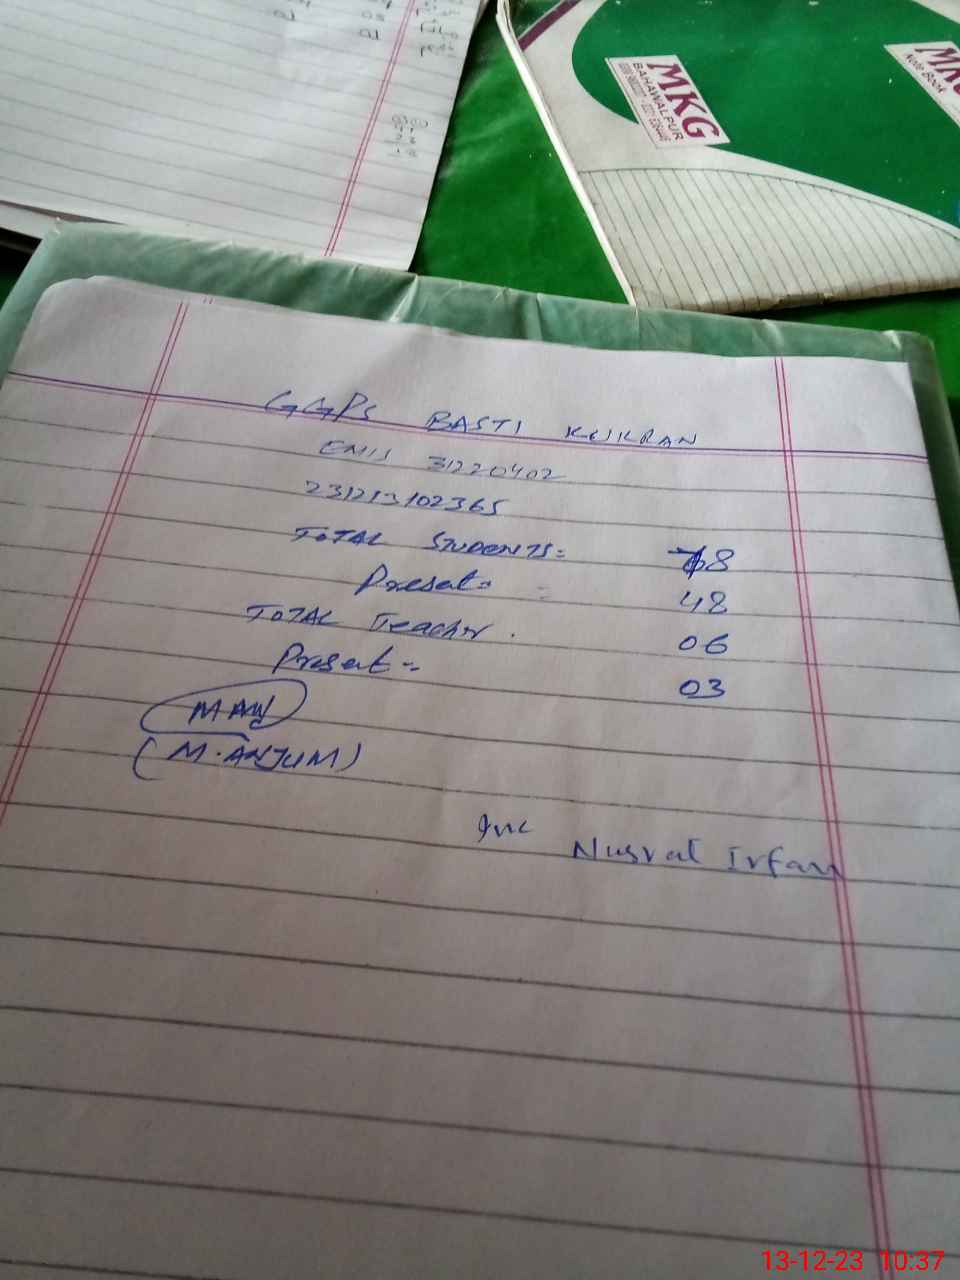 MKG
BAHAWALPUR
Note Book
GGPS BASTI KUKRAN
EMIS 31220402
231213102365
TOTAL STUDENTS = 78
Present = 48
TOTAL Teacher . 06
Present = 03
MAW
(M. ANJUM)
Inc
Nusrat Irfan
13-12-23 10:37